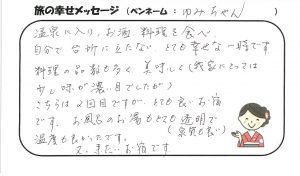 旅の幸せメッセージ（ペンネーム：ゆみちゃん）
温泉に入り、お酒、料理を食べ、
自分で台所に立たない、とても幸せな一時です
料理の品数も多く、美味しく(我家にとっては
少し味が濃い目でしたが)
こちらは2回目ですが、とても良いお宿
です。お風呂のお湯もとても透明で
(泉質も良い)
温度も良かったです。
又、来たいお宿です